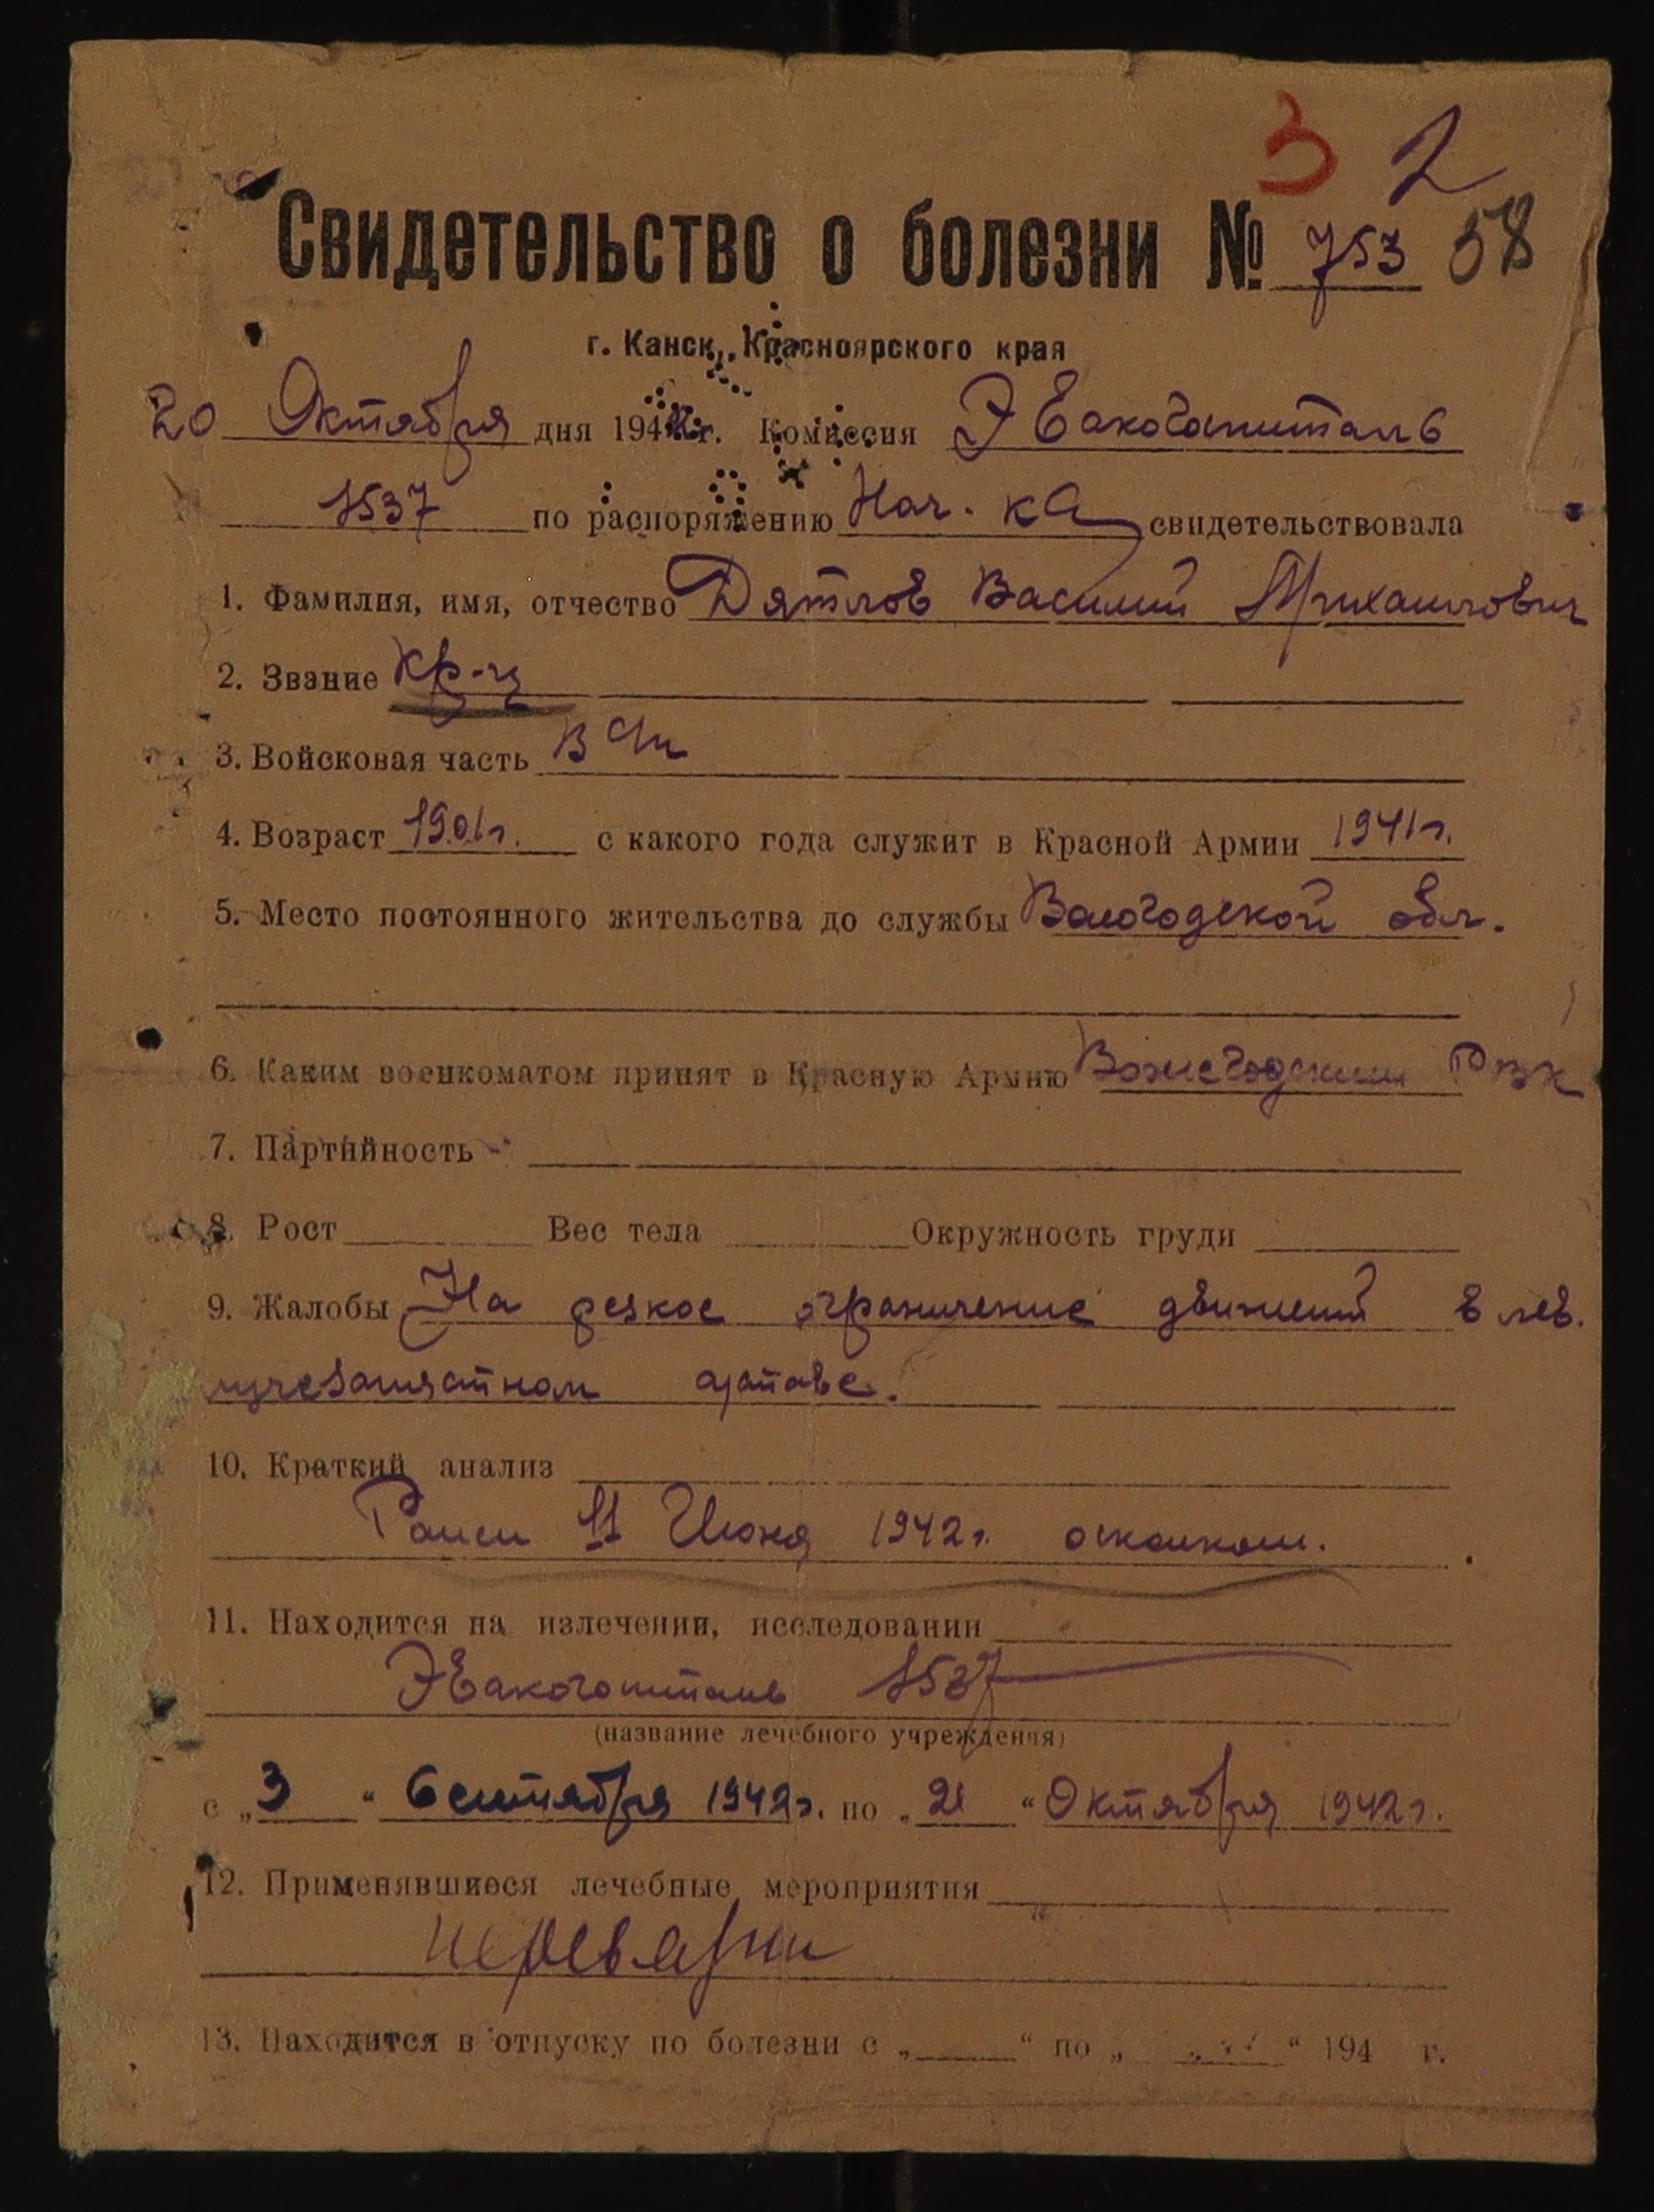 3 2
Свидетельство о болезни № 753 58
г. Канск, Красноярского края
20 Октября дня 1942 г. Комиссия Эвакогоспиталь
1537 по распоряжению Нач. КА свидетельствовала
1. Фамилия, имя, отчество Дятлов Василий Михайлович
2. Звание Кр-ц
3. Войсковая часть
4. Возраст 1901г. с какого года служит в Красной Армии 1941г.
5. Место постоянного жительства до службы Вологодской обл.
6. Каким военкоматом принят в Красную Армию Вожегодским РВК
7. Партийность -
8. Рост Вес тела Окружность груди
9. Жалобы На резкое ограничение движений в лев.
лучезапястном суставе.
10. Краткий анализ
Ранен 11 Июня 1942г. осколком.
11. Находится на излечении, исследовании
Эвакогоспиталь 1537
(название лечебного учреждения)
с „3“ Сентября 1942г. по „21“ Октября 1942г.
12. Применявшиеся лечебные мероприятия
13. Находится в отпуску по болезни с „ “ по „ “ 194 г.